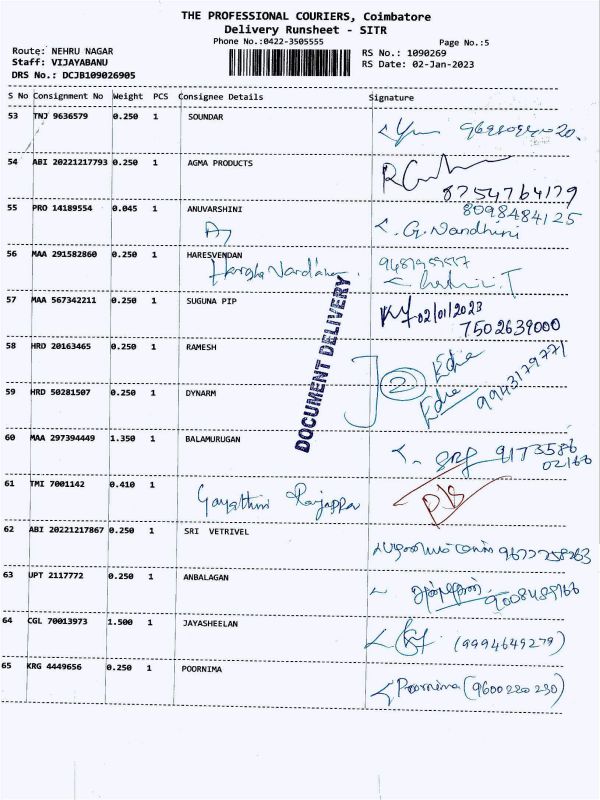 THE PROFESSIONAL COURIERS, Coimbatore
Delivery Runsheet - SITR
Phone No.:0422-3505555
Page No.:5
Route: NEHRU NAGAR
Staff: VIJAYABANU
DRS No.: DCJB109026905
RS No.: 1090269
RS Date: 02-Jan-2023
S No Consignment No Weight PCS Consignee Details Signature
53 TNJ 9636579 0.250 1 SOUNDAR
54 ABI 20221217793 0.250 1 AGMA PRODUCTS
8754764179
55 PRO 14189554 0.045 1 ANUVARSHINI
8098484125
G. Nandhini
56 MAA 291582860 0.250 1 HARESVENDAN
57 MAA 567342211 0.250 1 SUGUNA PIP
02/01/2023
7502639000
58 HRD 20163465 0.250 1 RAMESH
2
9943179771
59 HRD 50281507 0.250 1 DYNARM
DOCUMENT DELIVERY
60 MAA 297394449 1.350 1 BALAMURUGAN
61 TMI 7001142 0.410 1
Gayathiri Rajappa
62 ABI 20221217867 0.250 1 SRI VETRIVEL
63 UPT 2117772 0.250 1 ANBALAGAN
64 CGL 70013973 1.500 1 JAYASHEELAN
(9994649279)
65 KRG 4449656 0.250 1 POORNIMA
Poornima (9600220230)